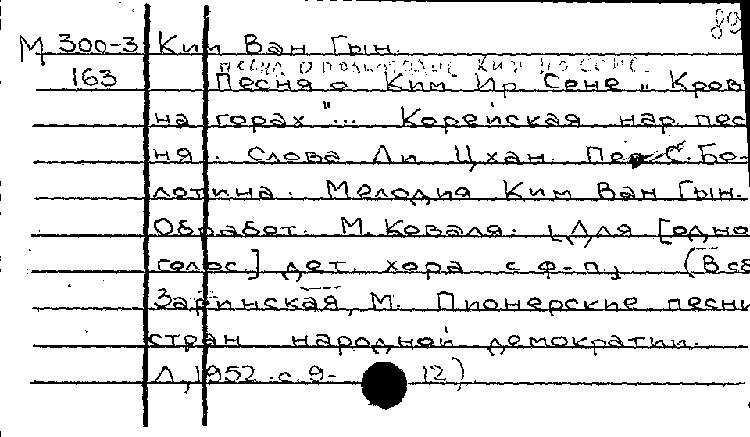 89
М 300-3 Ким Ван Гын.
Песня о полководце Ким Ир Сене.
163 Песня о Ким Ир Сене „Кровь
на горах"... Корейская нар. пес-
ня. Слова Ли Цхан. Пер. С. Бо-
лотина. Мелодия Ким Ван Гын.
Обработ. М. Коваля. [Для [одно
голос.] дет. хора с ф-п] (В сб
Заринская, М. Пионерские песни
стран народной демократии.
Л., 1952. с. 9- 12)